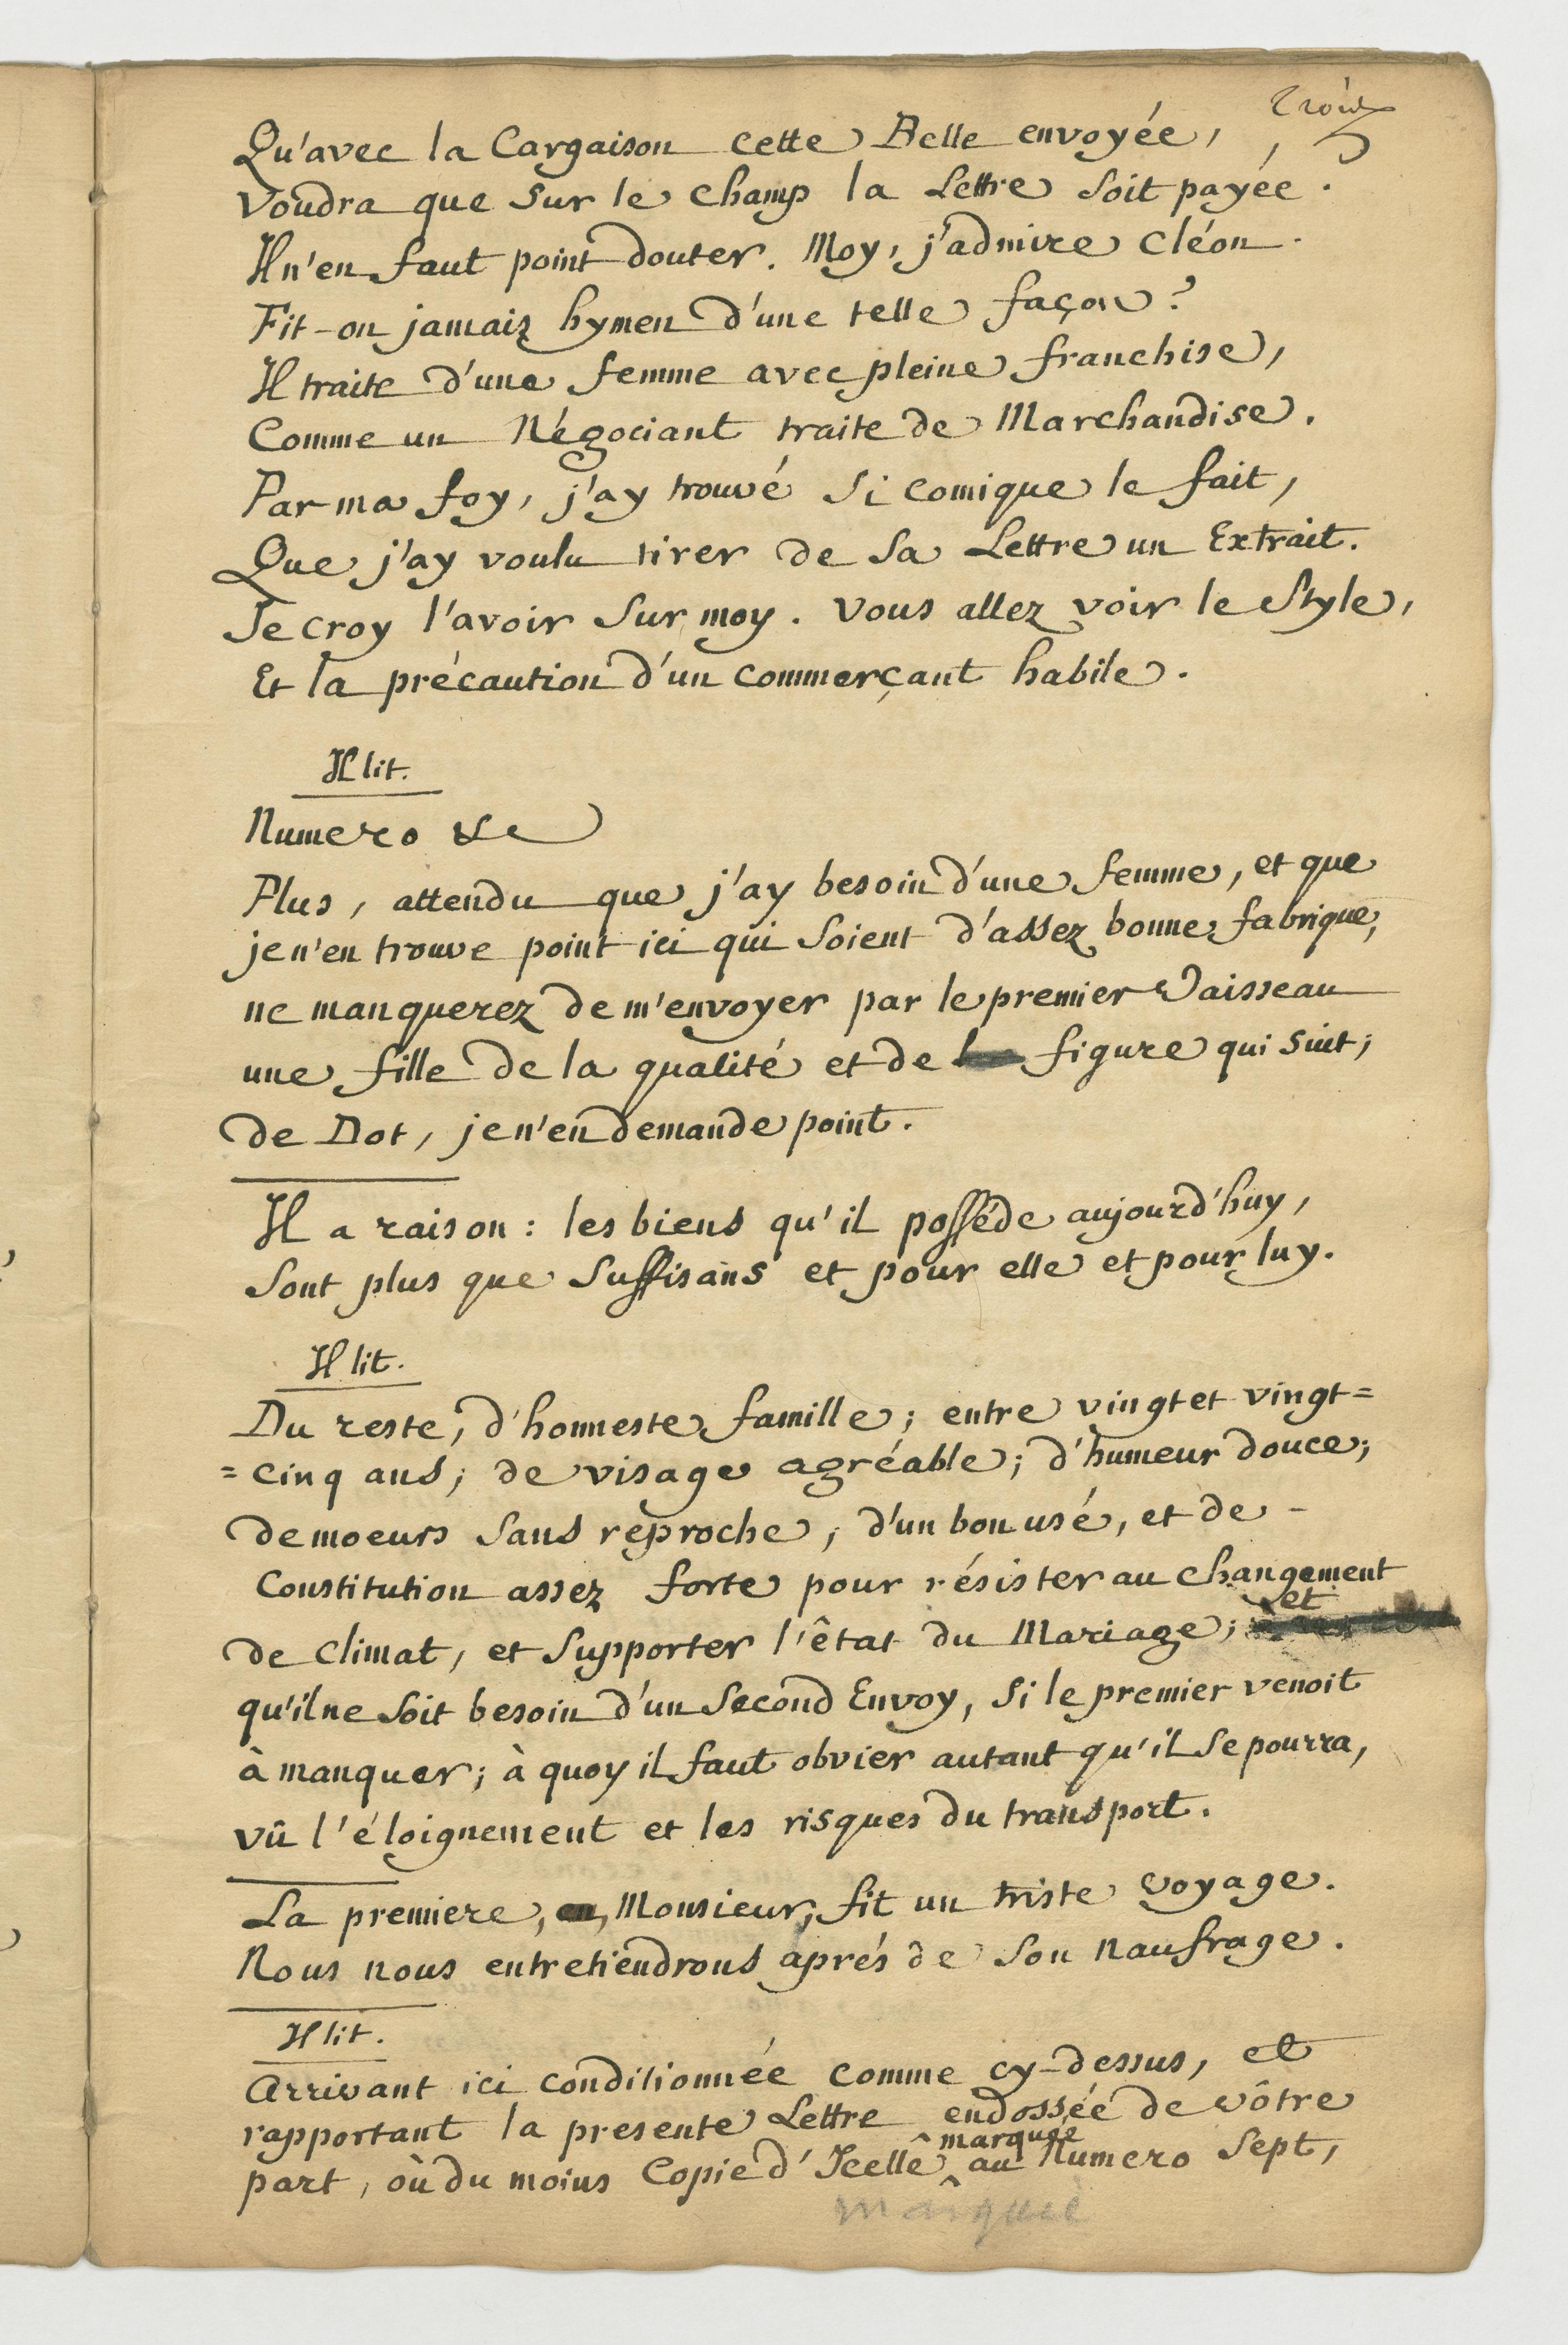 trois
Qu'avec la Cargaison cette Belle envoyée,
Voudra que sur le champ la Lettre soit payée.
Il n'en faut point douter. Moy, j'admire Cléon.
Fit-on jamais hymen d'une telle façon?
Il traite d'une femme avec pleine franchise,
Comme un Négociant traite de Marchandise.
Par ma foy, j'ay trouvé si comique le fait,
Que j'ay voulu tirer de sa Lettre un Extrait.
Je croy l'avoir sur moy. Vous allez voir le Style,
Et la précaution d'un commerçant habile.
Il lit.
Numero &c
Plus, attendu que j'ay besoin d'une femme, et que
je n'en trouve point ici qui soient d'assez bonne fabrique,
ne manquerez de m'envoyer par le premier Vaisseau
une fille de la qualité et de figure qui suit;
de Dot, je n'en demande point.
Il a raison: les biens qu'il posséde aujourd'huy,
Sont plus que suffisans et pour elle et pour luy.
Il lit.
Du reste, d'honneste famille; entre vingt et vingt=
=cinq ans; de visage agréable; d'humeur douce;
de moeurs sans reproche, d'un bon usé, et de -
Constitution assez forte pour résister au changement
de climat, et supporter l'êtat du Mariage; et
qu'il ne soit besoin d'un second Envoy, si le premier venoit
à manquer; à quoy il faut obvier autant qu'il se pourra,
vû l'éloignement et les risques du transport.
La premiere, Monsieur, fit un triste voyage.
Nous nous entretiendrons aprés de son naufrage.
Il lit.
Arrivant ici conditionnée comme cy-dessus, et
rapportant la presente Lettre endossée de vôtre
part, où du moins Copie d'Icelle marquée au Numero Sept,
marquée